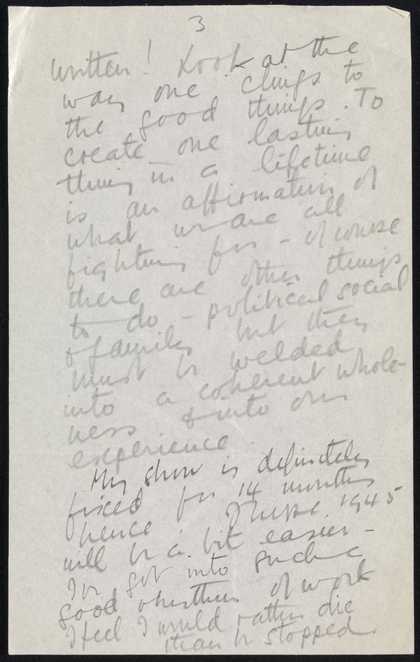 3
written! Look at the
way one clings to
the good things. To
create one lasting
thing in a lifetime
is an affirmation of
what we are all
fighting for - of course
there are other things
to do - political social
& family but they
must be welded
into a coherent whole-
ness & into our
experience
My show is definitely
fixed for 14 months
hence I hope 1945
will be a bit easier -
I've got into such a
good rhythm of work
I feel I would rather die
than be stopped